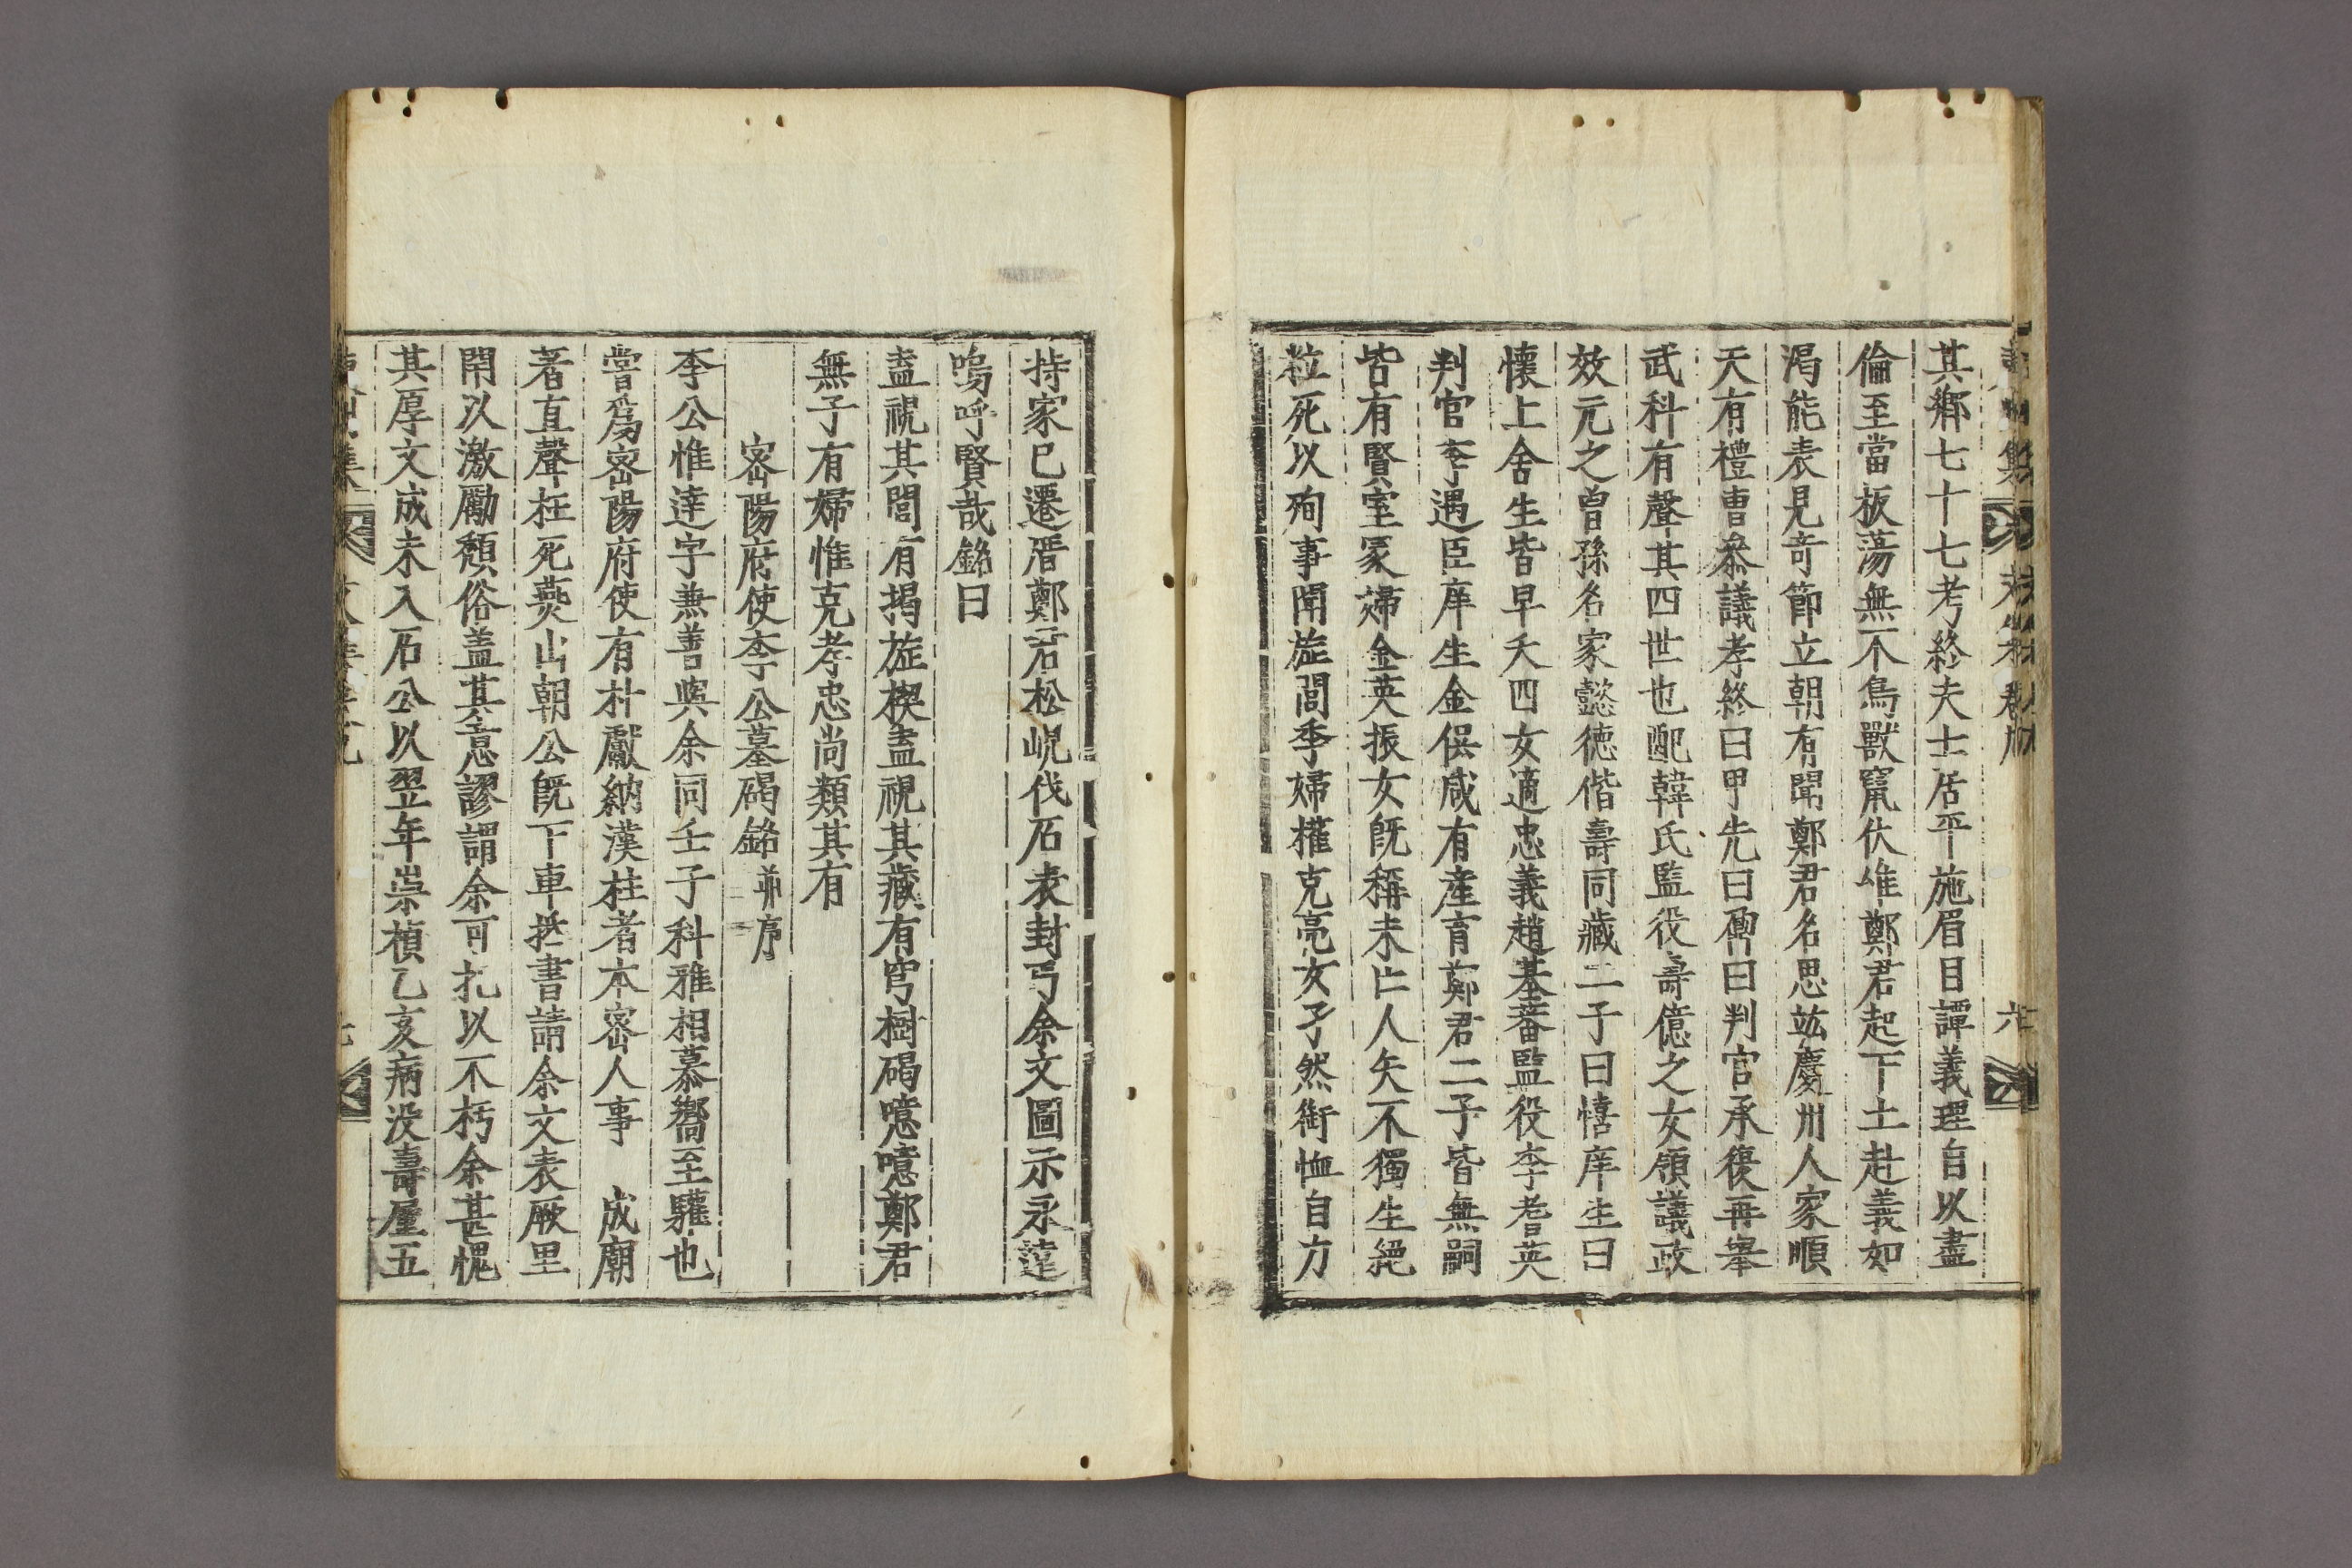 其鄕七十七考終夫士居平施眉目譚義理自以盡
倫至當板蕩無不鳥獸竄伏唯鄭君起下土赴義如
渴能表見奇節立朝有聞鄭君名思竑慶州人家順
天有禮曹叅議孝終曰甲先曰鄮曰判官承復再擧
武科有聲其四世也配韓氏監役壽億之女領議政
效元之曾孫名家懿徳偕壽同藏二子曰憘庠生曰
懷上舍生皆早夭四女適忠義趙基蕃監役李耆英
判官李遇臣庠生金偀咸有産育鄭君二子皆無嗣
皆有賢室冢婦金英振女旣稱未亡人矣不獨生絕
粒死以殉事聞旌閭季婦權克亮女孑然銜恤自力
持家已遷厝鄭君松峴伐石表封丐余文圖示永遠
嗚呼賢哉銘曰
盍視其閭有揭旌楔盍視其藏有穹樹碣噫噫鄭君
無子有婦惟克孝忠尚類其有
密陽府使李公墓碣銘幷序
李公惟達字兼善與余同壬子科雅相慕嚮至驩也
嘗爲密陽府使有朴獻納漢柱者本密人事 成廟
著直聲枉死燕山朝公旣下車抵書請余文表厥里
閈以激勵頹俗盖其意謬謂余可扎以不朽余甚愧
其厚文成未入石公以翌年崇禎乙亥病没壽屋五